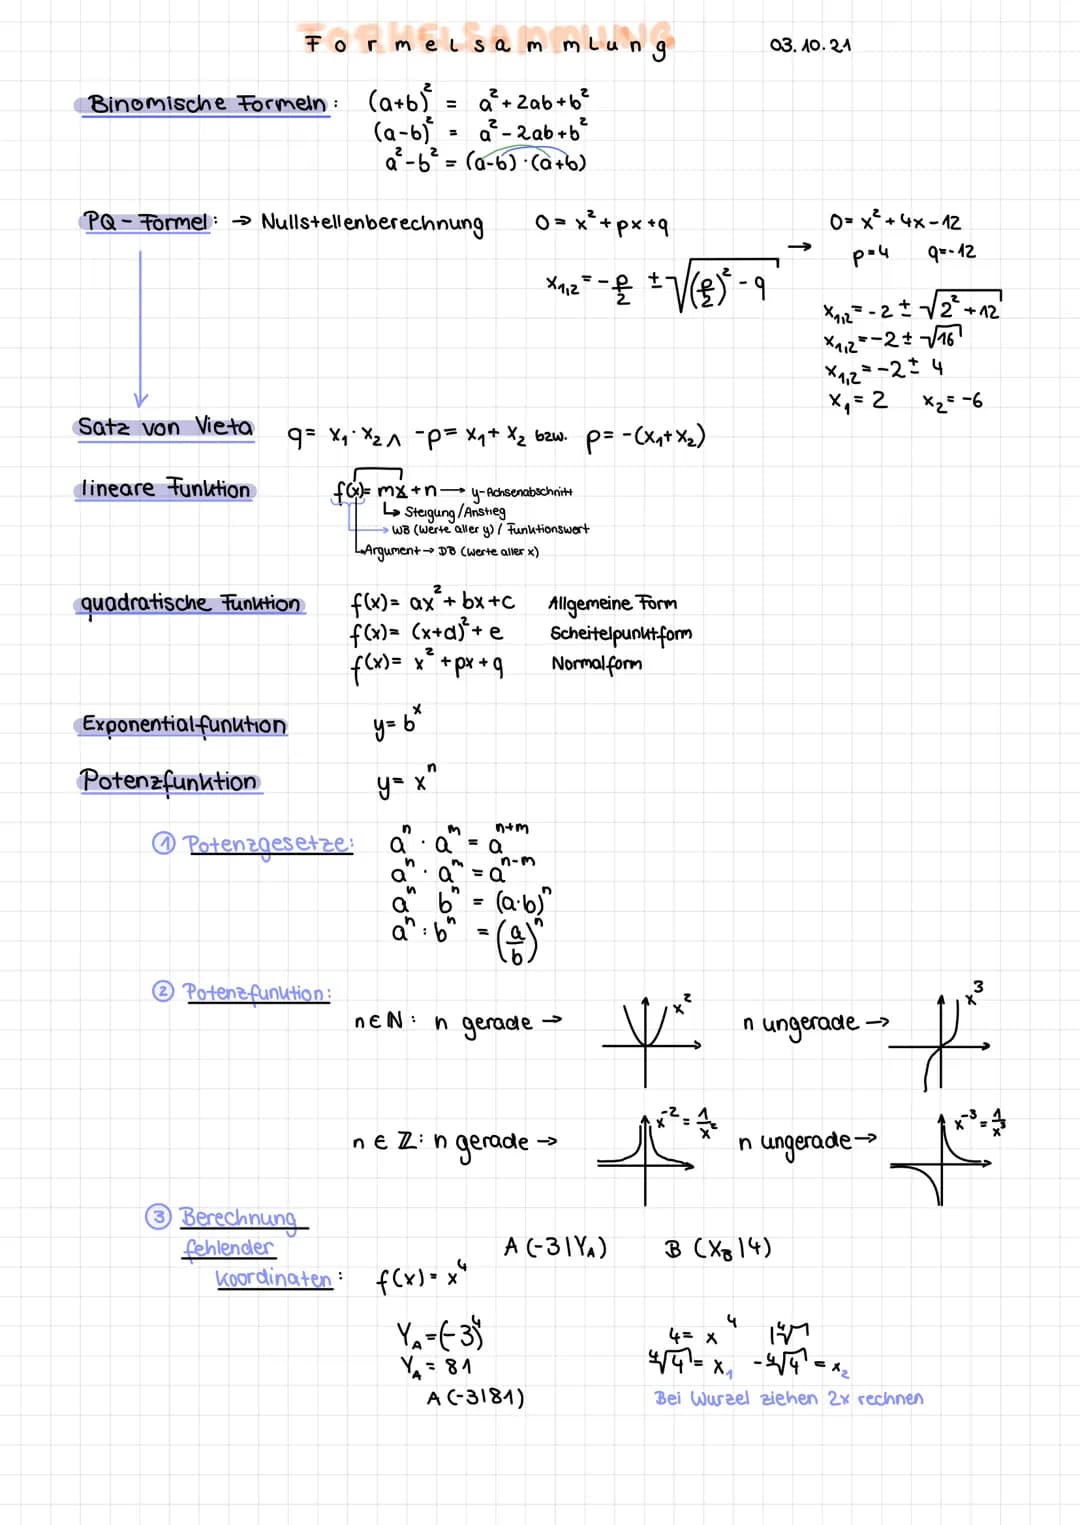 FORMELSAMMLUNG
Formelsammlung 03.10.21
Binomische Formeln: (a+b)² = a²+2ab+b²
(a-b)² = a²-2ab+b²
a²-b² = (a-b)·(a+b)
PQ-Formel: → Nullstellenberechnung 0=x²+px+q → 0=x²+4x-12
p=4 q=-12
x₁,₂ = -p/2 ± √((p/2)²-q)
x₁,₂ = -2 ± √(2²+12)
x₁,₂ = -2 ± √16
x₁,₂ = -2 ± 4
x₁ = 2 x₂ = -6
Satz von Vieta q = x₁·x₂ ∧ -p = x₁+x₂ bzw. p = -(x₁+x₂)
lineare Funktion f(x)= mx+n → y-Achsenabschnitt
↳ Steigung/Anstieg
→ WB (Werte aller y) / Funktionswert
Argument → DB (Werte aller x)
quadratische Funktion f(x)= ax²+bx+c Allgemeine Form
f(x)= (x+d)²+e Scheitelpunktform
f(x)= x²+px+q Normalform
Exponentialfunktion y= bˣ
Potenzfunktion y= xⁿ
① Potenzgesetze: aⁿ · aᵐ = aⁿ⁺ᵐ
aⁿ · aᵐ = aⁿ⁻ᵐ
aⁿ bⁿ = (a·b)ⁿ
aⁿ : bⁿ = (a/b)ⁿ
② Potenzfunktion:
n∈ℕ: n gerade → x² n ungerade → x³
n∈ℤ: n gerade → x⁻² = 1/x² n ungerade → x⁻³ = 1/x³
③ Berechnung
fehlender A(-3|Y_A) B(X_B|4)
Koordinaten: f(x)= x⁴
Y_A = (-3)⁴ 4 = x⁴ |⁴√
Y_A = 81 ⁴√4 = x₁ -⁴√4 = x₂
A(-3|81) Bei Wurzel ziehen 2x rechnen